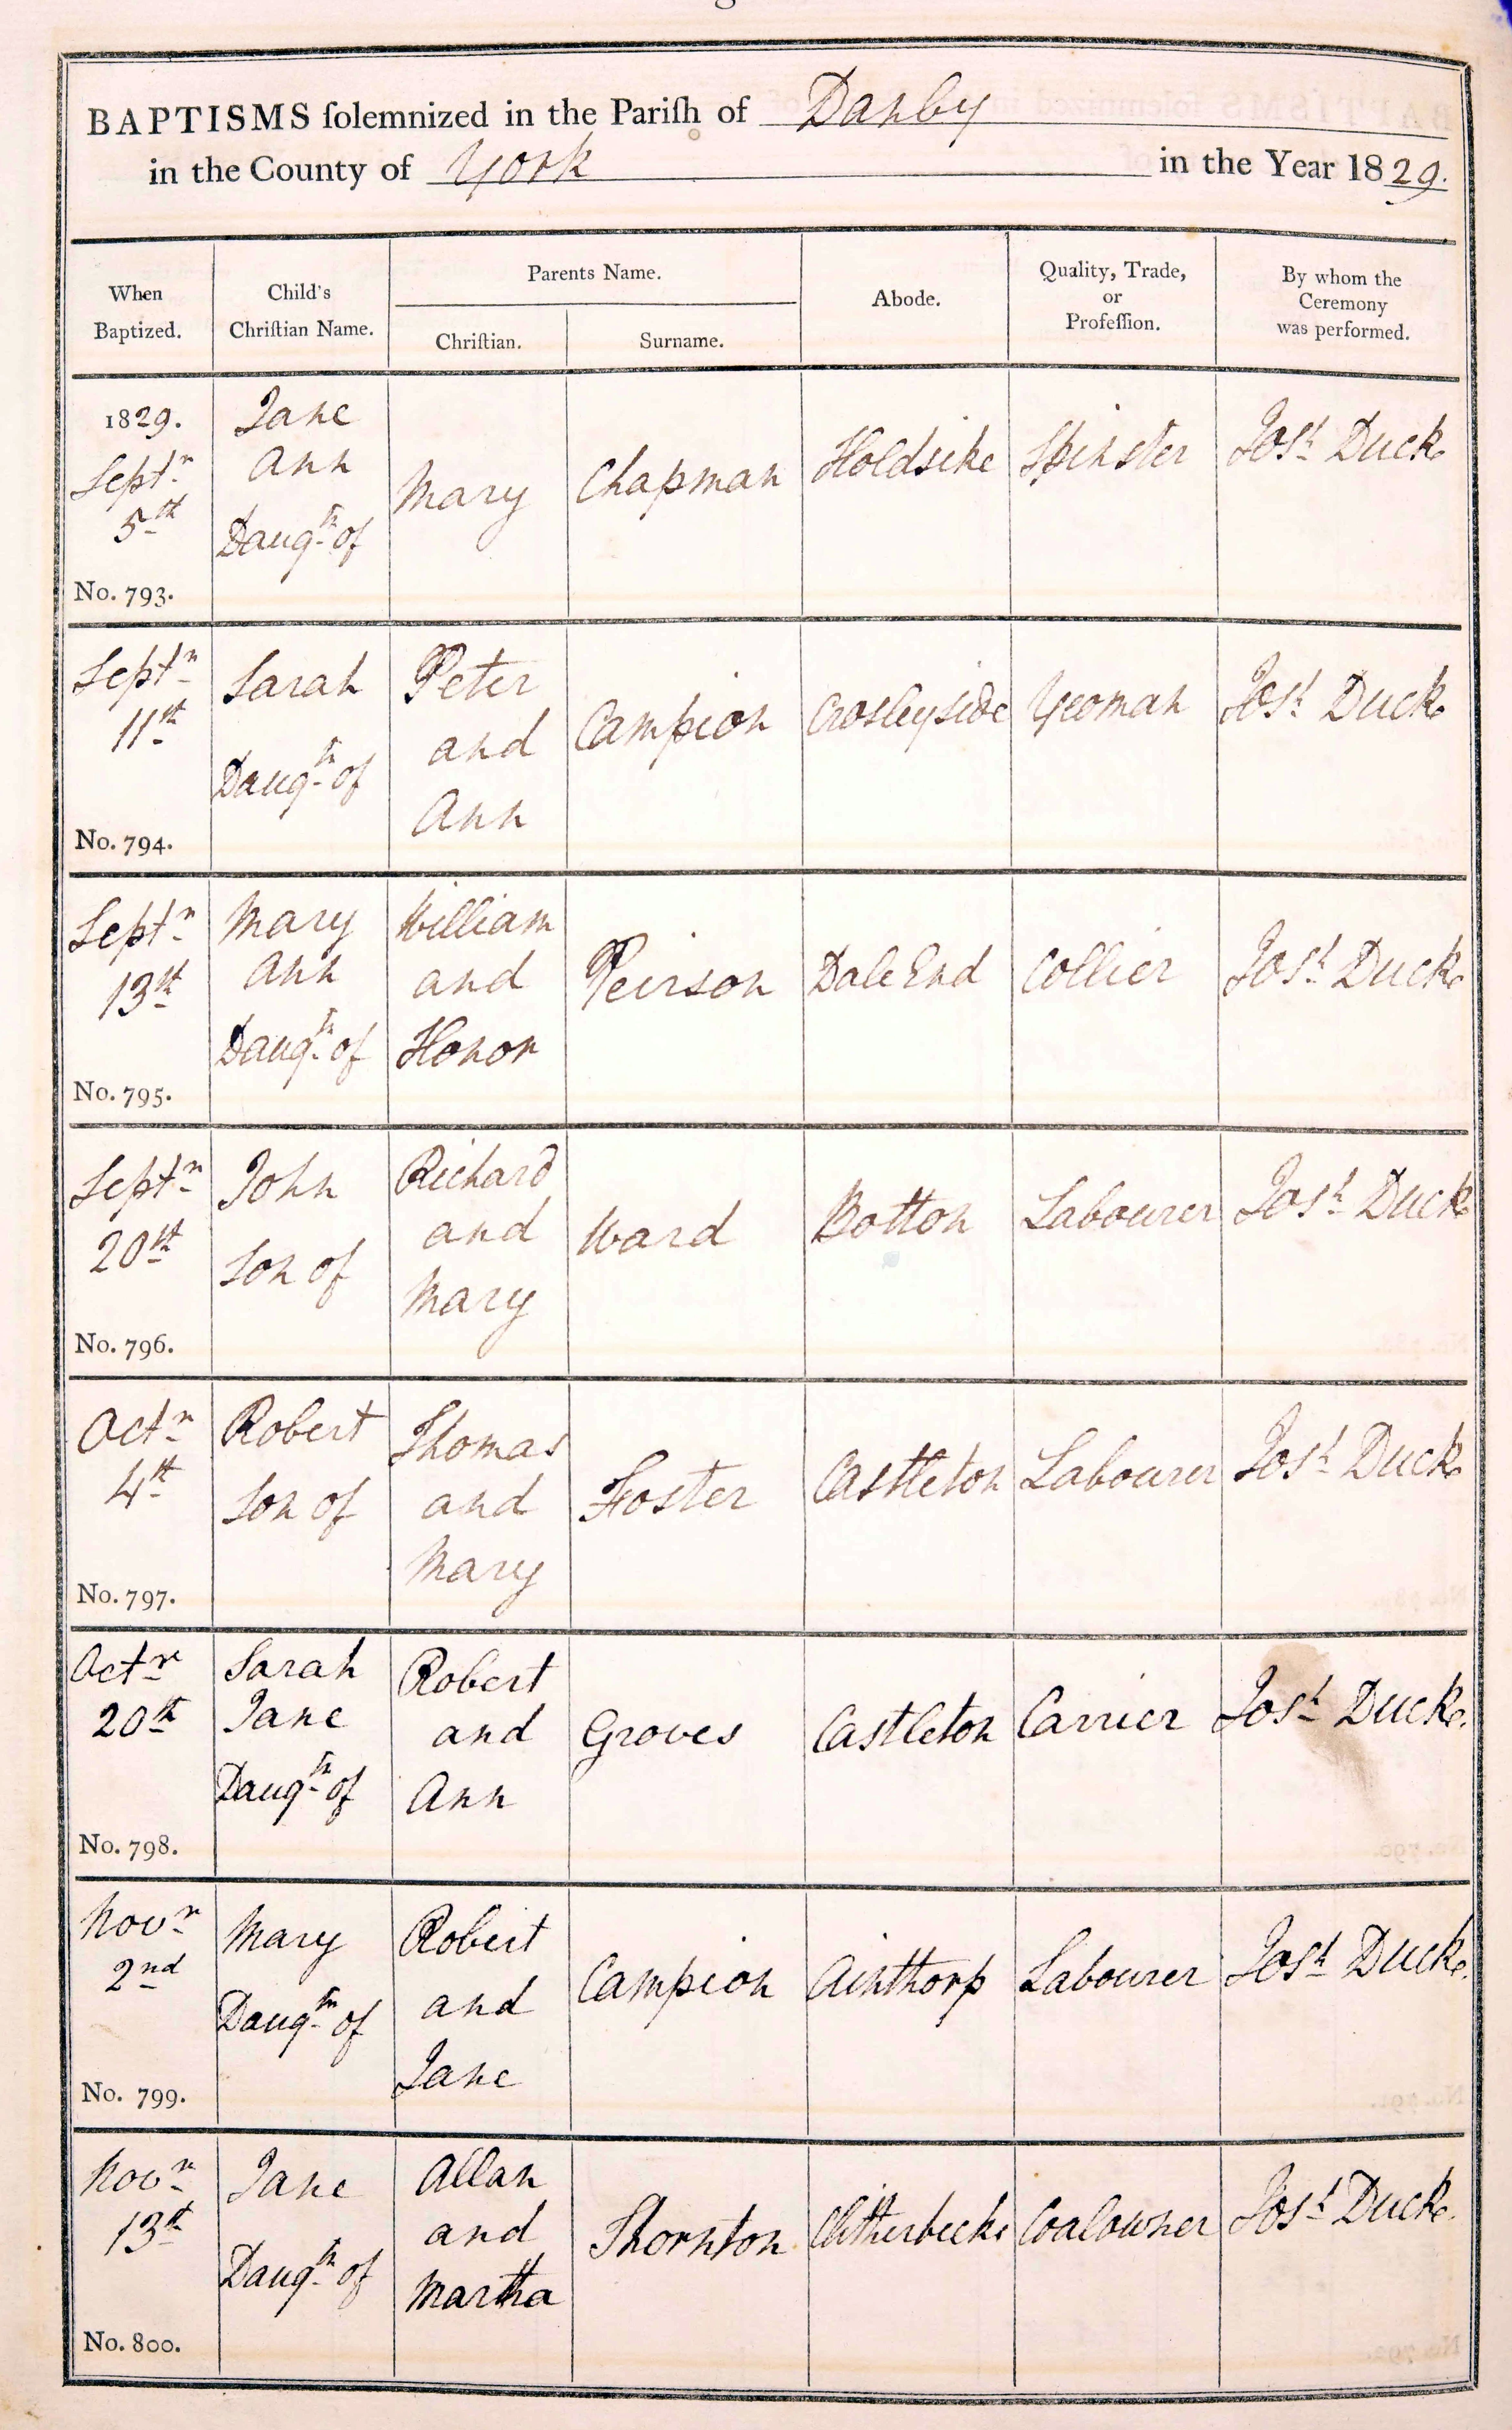 BAPTISMS ſolemnized in the Pariſh of Danby
in the County of York in the Year 1829.
When Baptized.
Child's Chriſtian Name.
Parents Name.
Chriſtian.
Surname.
Abode.
Quality, Trade, or Profeſſion.
By whom the Ceremony was performed.
1829. Septr 5th No. 793.
Jane Ann Daugtr of
Mary
Chapman
Holdsike
Spinster
Josh Duck
Septr 11th No. 794.
Sarah Daugtr of
Peter and Ann
Campion
Crosleyside
Yeoman
Josh Duck
Septr 13th No. 795.
Mary Ann Daugtr of
William and Honor
Peirson
Dale End
Collier
Josh Duck
Septr 20th No. 796.
John Son of
Richard and Mary
Ward
Botton
Labourer
Josh Duck
Octr 4th No. 797.
Robert Son of
Thomas and Mary
Foster
Castleton
Labourer
Josh Duck
Octr 20th No. 798.
Sarah Jane Daugtr of
Robert and Ann
Groves
Castleton
Carrier
Josh Duck.
Novr 2nd No. 799.
Mary Daugtr of
Robert and Jane
Campion
Ainthorp
Labourer
Josh Duck.
Novr 13th No. 800.
Jane Daugtr of
Allan and Martha
Thornton
Clitherbecke
Coalowner
Josh Duck.